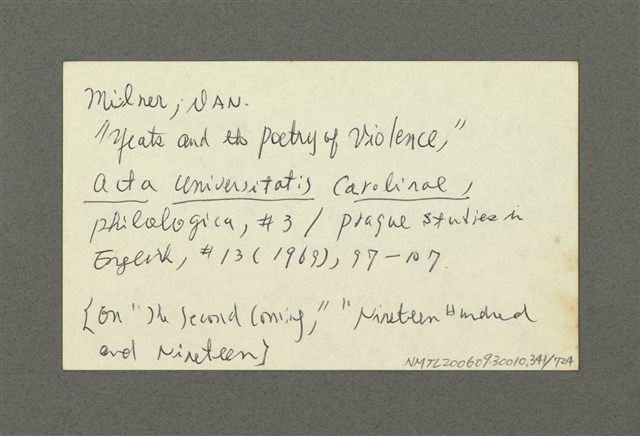 Milner, IAN.
"Yeats and the Poetry of Violence,"
Acta Universitatis Carolinae,
philologica, #3 / Prague Studies in
English, #13 (1969), 97-107.
[On "The Second Coming," "Nineteen Hundred
and Nineteen]
NMTL20060930010,341/724